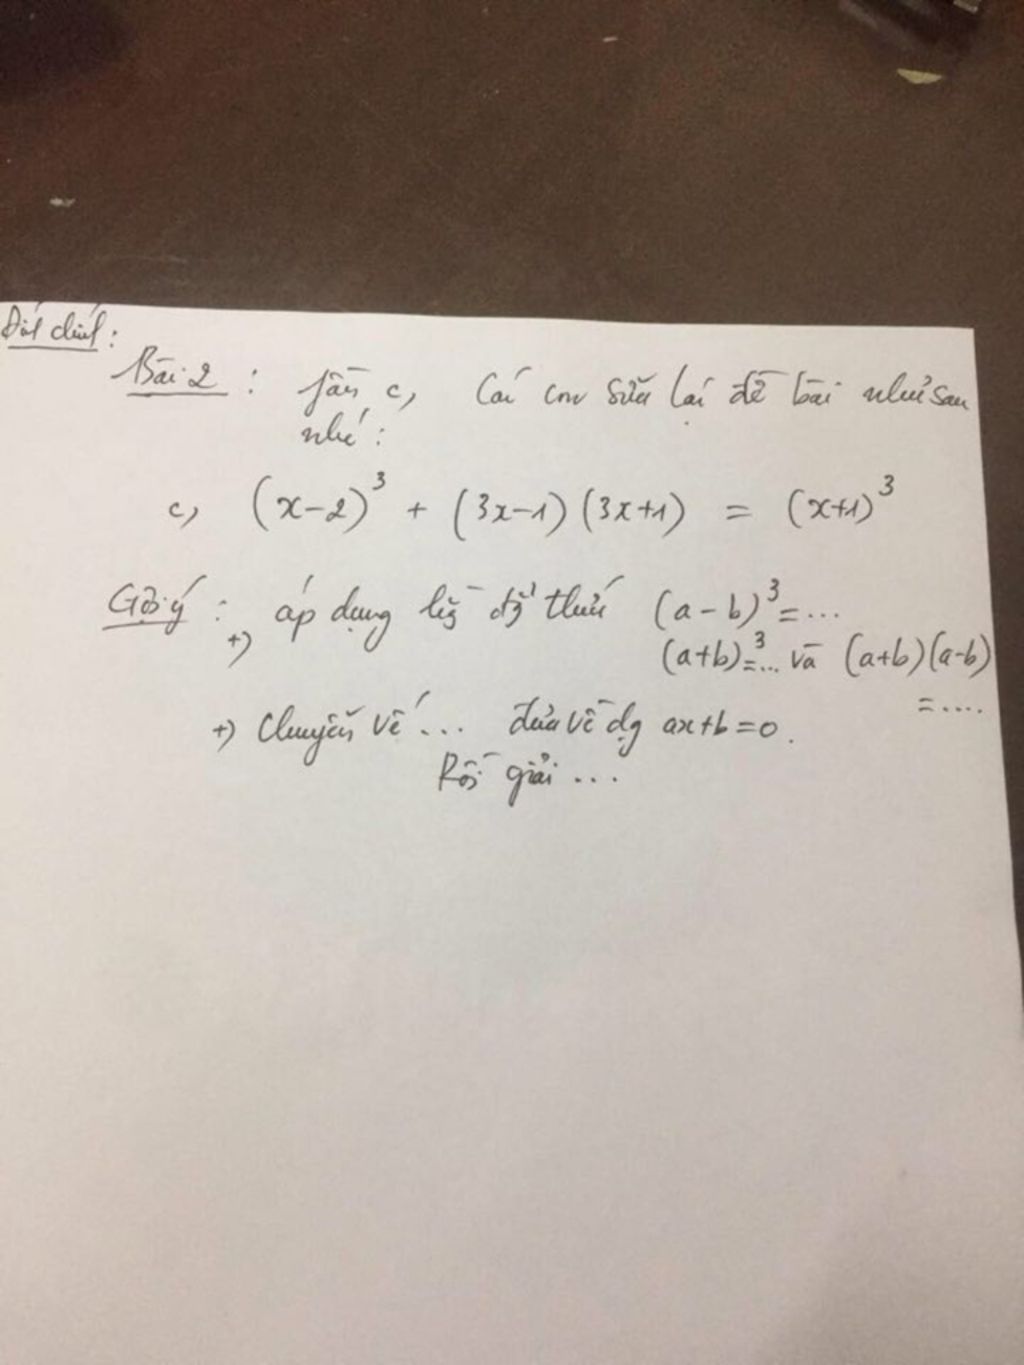 Đính chính:
Bài 2: phần c, Các con sửa lại đề bài như sau
nhé:
c, (x-2)³ + (3x-1)(3x+1) = (x+1)³
Gợi ý: +) áp dụng hằg đẳg thức (a-b)³=...
(a+b)³=... và (a+b)(a-b)
=....
+) Chuyển vế... đưa về dg ax+b=0.
Rồi giải...